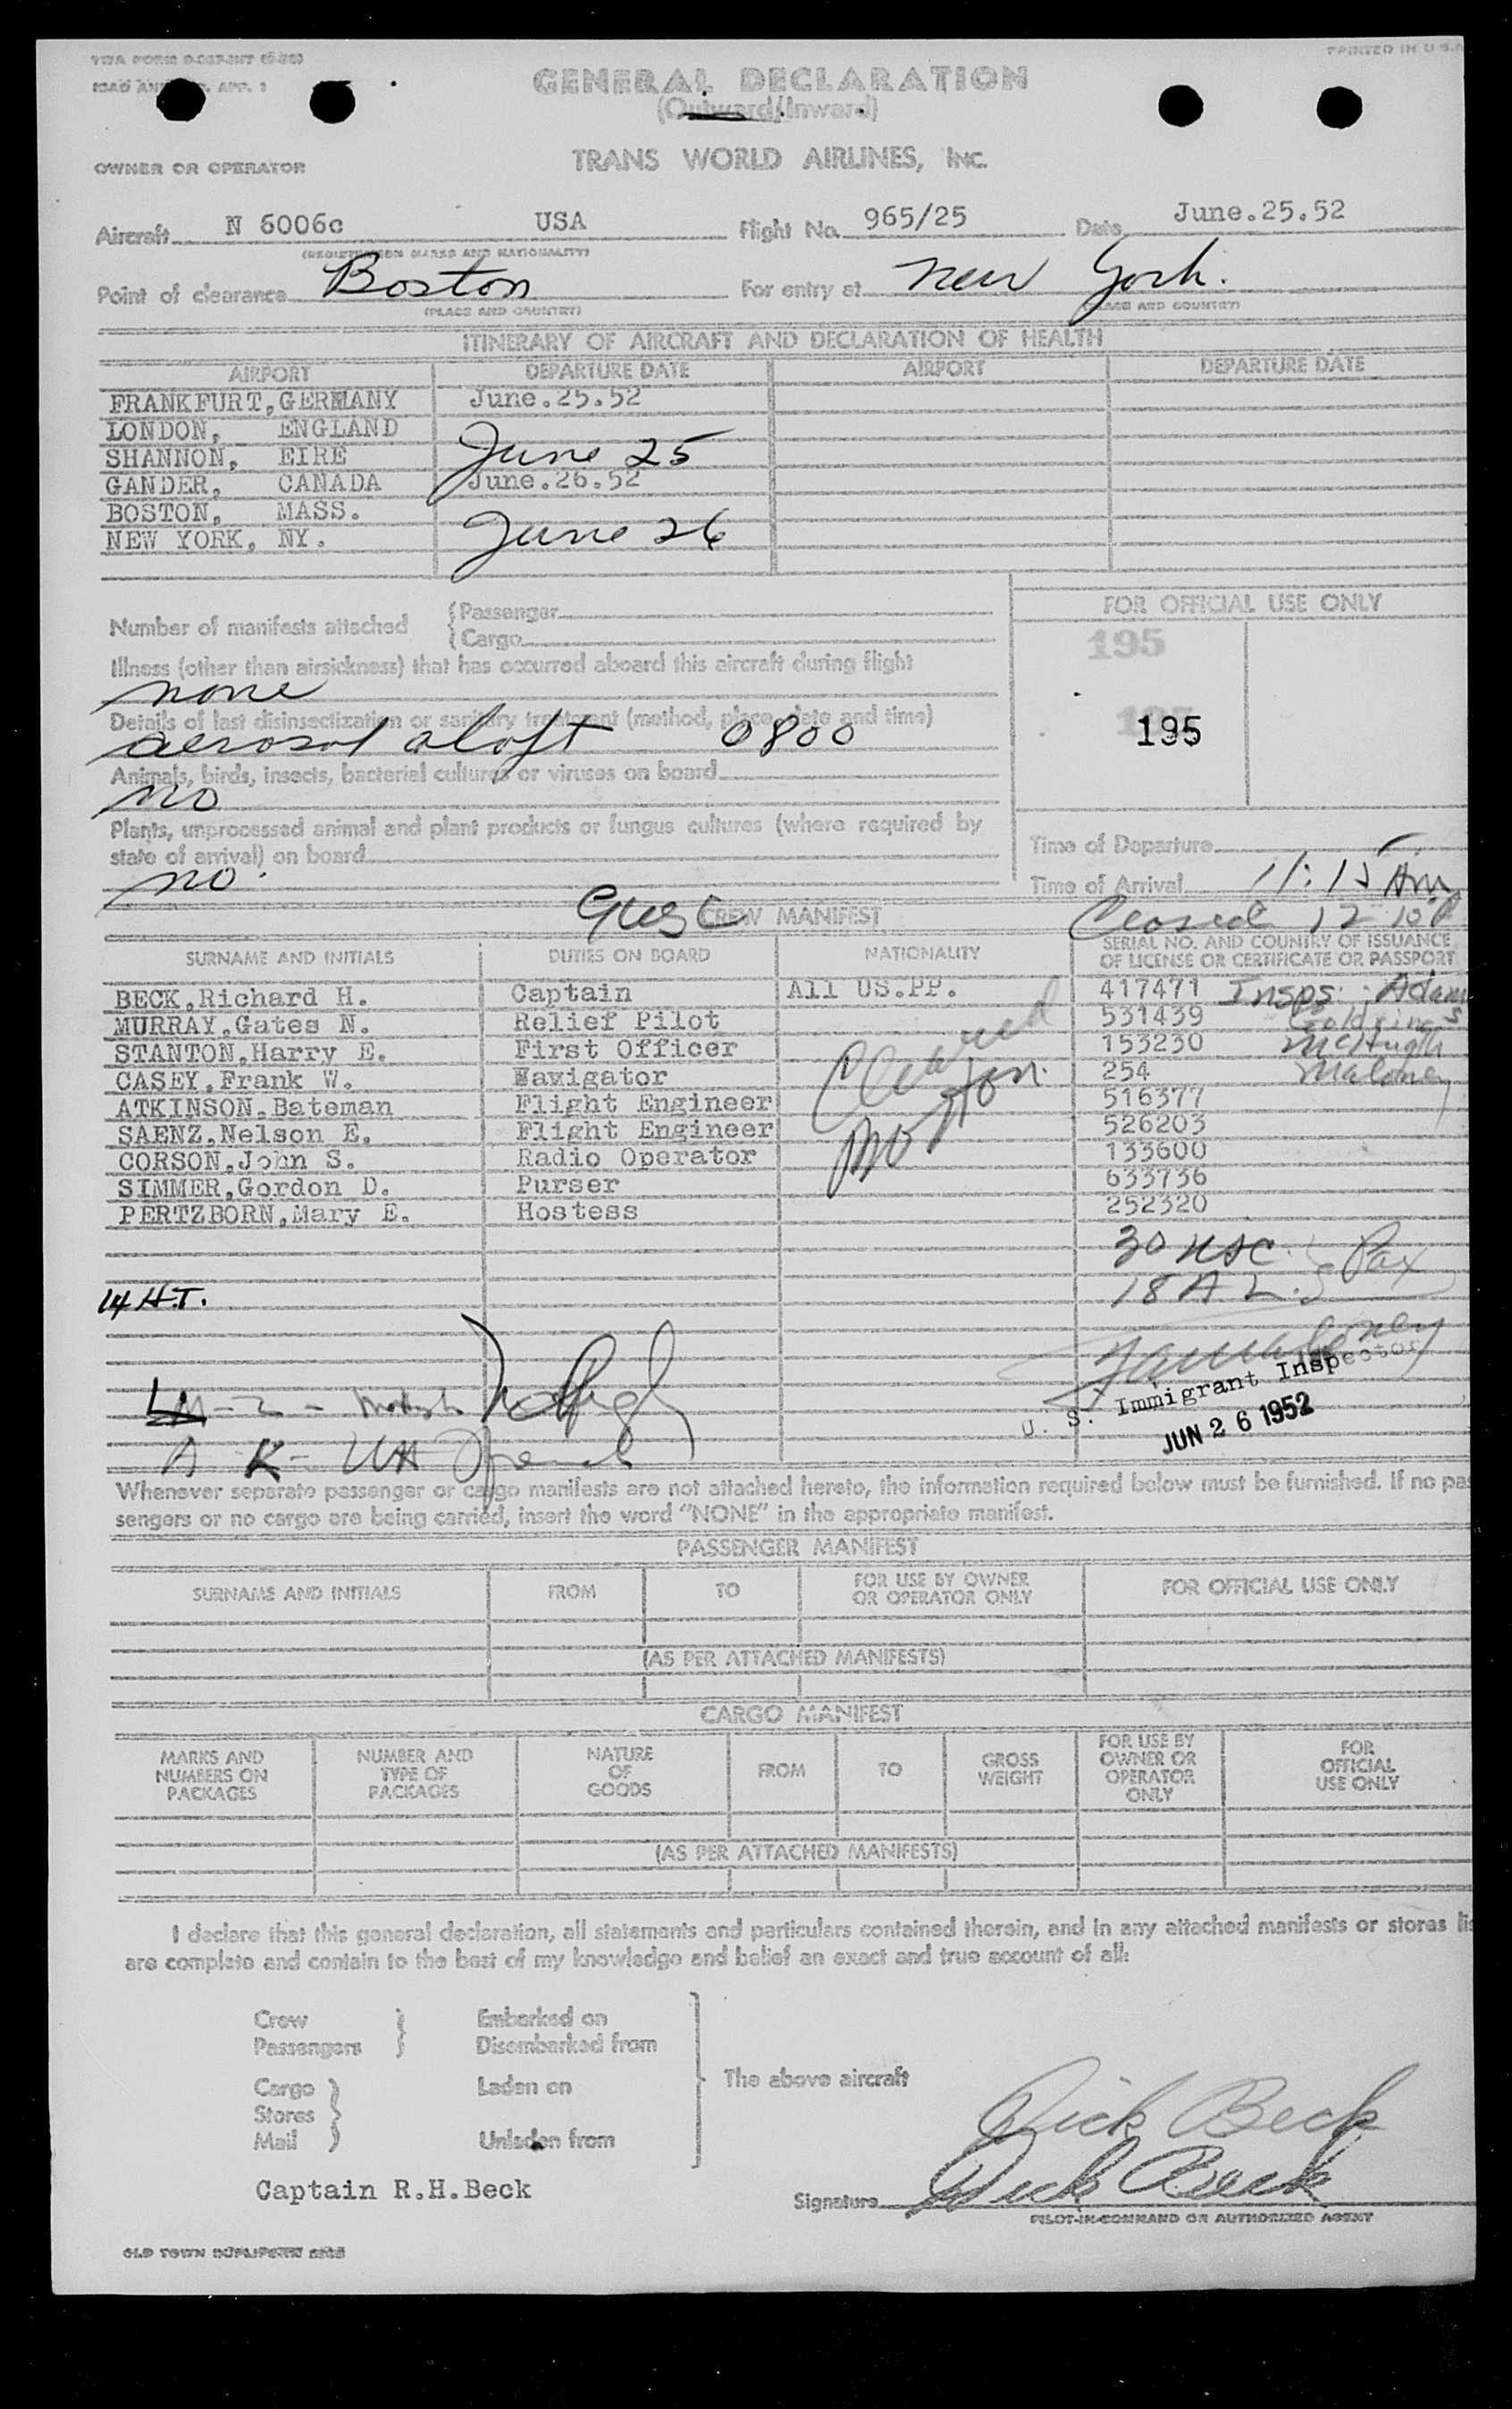 PRINTED IN U.S.A.
GENERAL DECLARATION
(Outward/Inward)
OWNER OR OPERATOR TRANS WORLD AIRLINES, INC.
Aircraft N 6006c USA Flight No. 965/25 Date June.25.52
(REGISTRATION MARKS AND NATIONALITY)
Point of clearance Boston For entry at New York.
(PLACE AND COUNTRY) (PLACE AND COUNTRY)
ITINERARY OF AIRCRAFT AND DECLARATION OF HEALTH
AIRPORT DEPARTURE DATE AIRPORT DEPARTURE DATE
FRANKFURT, GERMANY June.25.52
LONDON, ENGLAND
SHANNON, EIRE June 25
GANDER, CANADA June.26.52
BOSTON, MASS.
NEW YORK, NY. June 26
FOR OFFICIAL USE ONLY
Number of manifests attached {Passenger
{Cargo
195
Illness (other than airsickness) that has occurred aboard this aircraft during flight
none
Details of last disinsectization or sanitary treatment (method, place, date and time)
aerosol aloft 0800
195
Animals, birds, insects, bacterial cultures or viruses on board
no
Plants, unprocessed animal and plant products or fungus cultures (where required by
state of arrival) on board
no.
Time of Departure
Time of Arrival 11:15 AM
Closed 12 10P
CREW MANIFEST
SURNAME AND INITIALS DUTIES ON BOARD NATIONALITY SERIAL NO. AND COUNTRY OF ISSUANCE
OF LICENSE OR CERTIFICATE OR PASSPORT
BECK,Richard H. Captain All US.PP. 417471 Insps: Adams
MURRAY,Gates N. Relief Pilot 531439 Goldring
STANTON,Harry E. First Officer 153230 McHugh
CASEY,Frank W. Navigator 254 Maloney
ATKINSON,Bateman Flight Engineer 516377
SAENZ,Nelson E. Flight Engineer 526203
CORSON,John S. Radio Operator 133600
SIMMER,Gordon D. Purser 633736
PERTZBORN,Mary E. Hostess 252320
Cleared
30 USC. } Pax
18 A L.
14 H.T.
U. S. Immigrant Inspector
JUN 26 1952
Whenever separate passenger or cargo manifests are not attached hereto, the information required below must be furnished. If no pas
sengers or no cargo are being carried, insert the word "NONE" in the appropriate manifest.
PASSENGER MANIFEST
SURNAME AND INITIALS FROM TO FOR USE BY OWNER OR OPERATOR ONLY FOR OFFICIAL USE ONLY
(AS PER ATTACHED MANIFESTS)
CARGO MANIFEST
MARKS AND NUMBERS ON PACKAGES NUMBER AND TYPE OF PACKAGES NATURE OF GOODS FROM TO GROSS WEIGHT FOR USE BY OWNER OR OPERATOR ONLY FOR OFFICIAL USE ONLY
(AS PER ATTACHED MANIFESTS)
I declare that this general declaration, all statements and particulars contained therein, and in any attached manifests or stores lis
are complete and contain to the best of my knowledge and belief an exact and true account of all:
Crew } Embarked on
Passengers } Disembarked from
Cargo } Laden on The above aircraft
Stores }
Mail } Unladen from
Dick Beck
Captain R.H.Beck
Signature Dick Beck
PILOT-IN-COMMAND OR AUTHORIZED AGENT